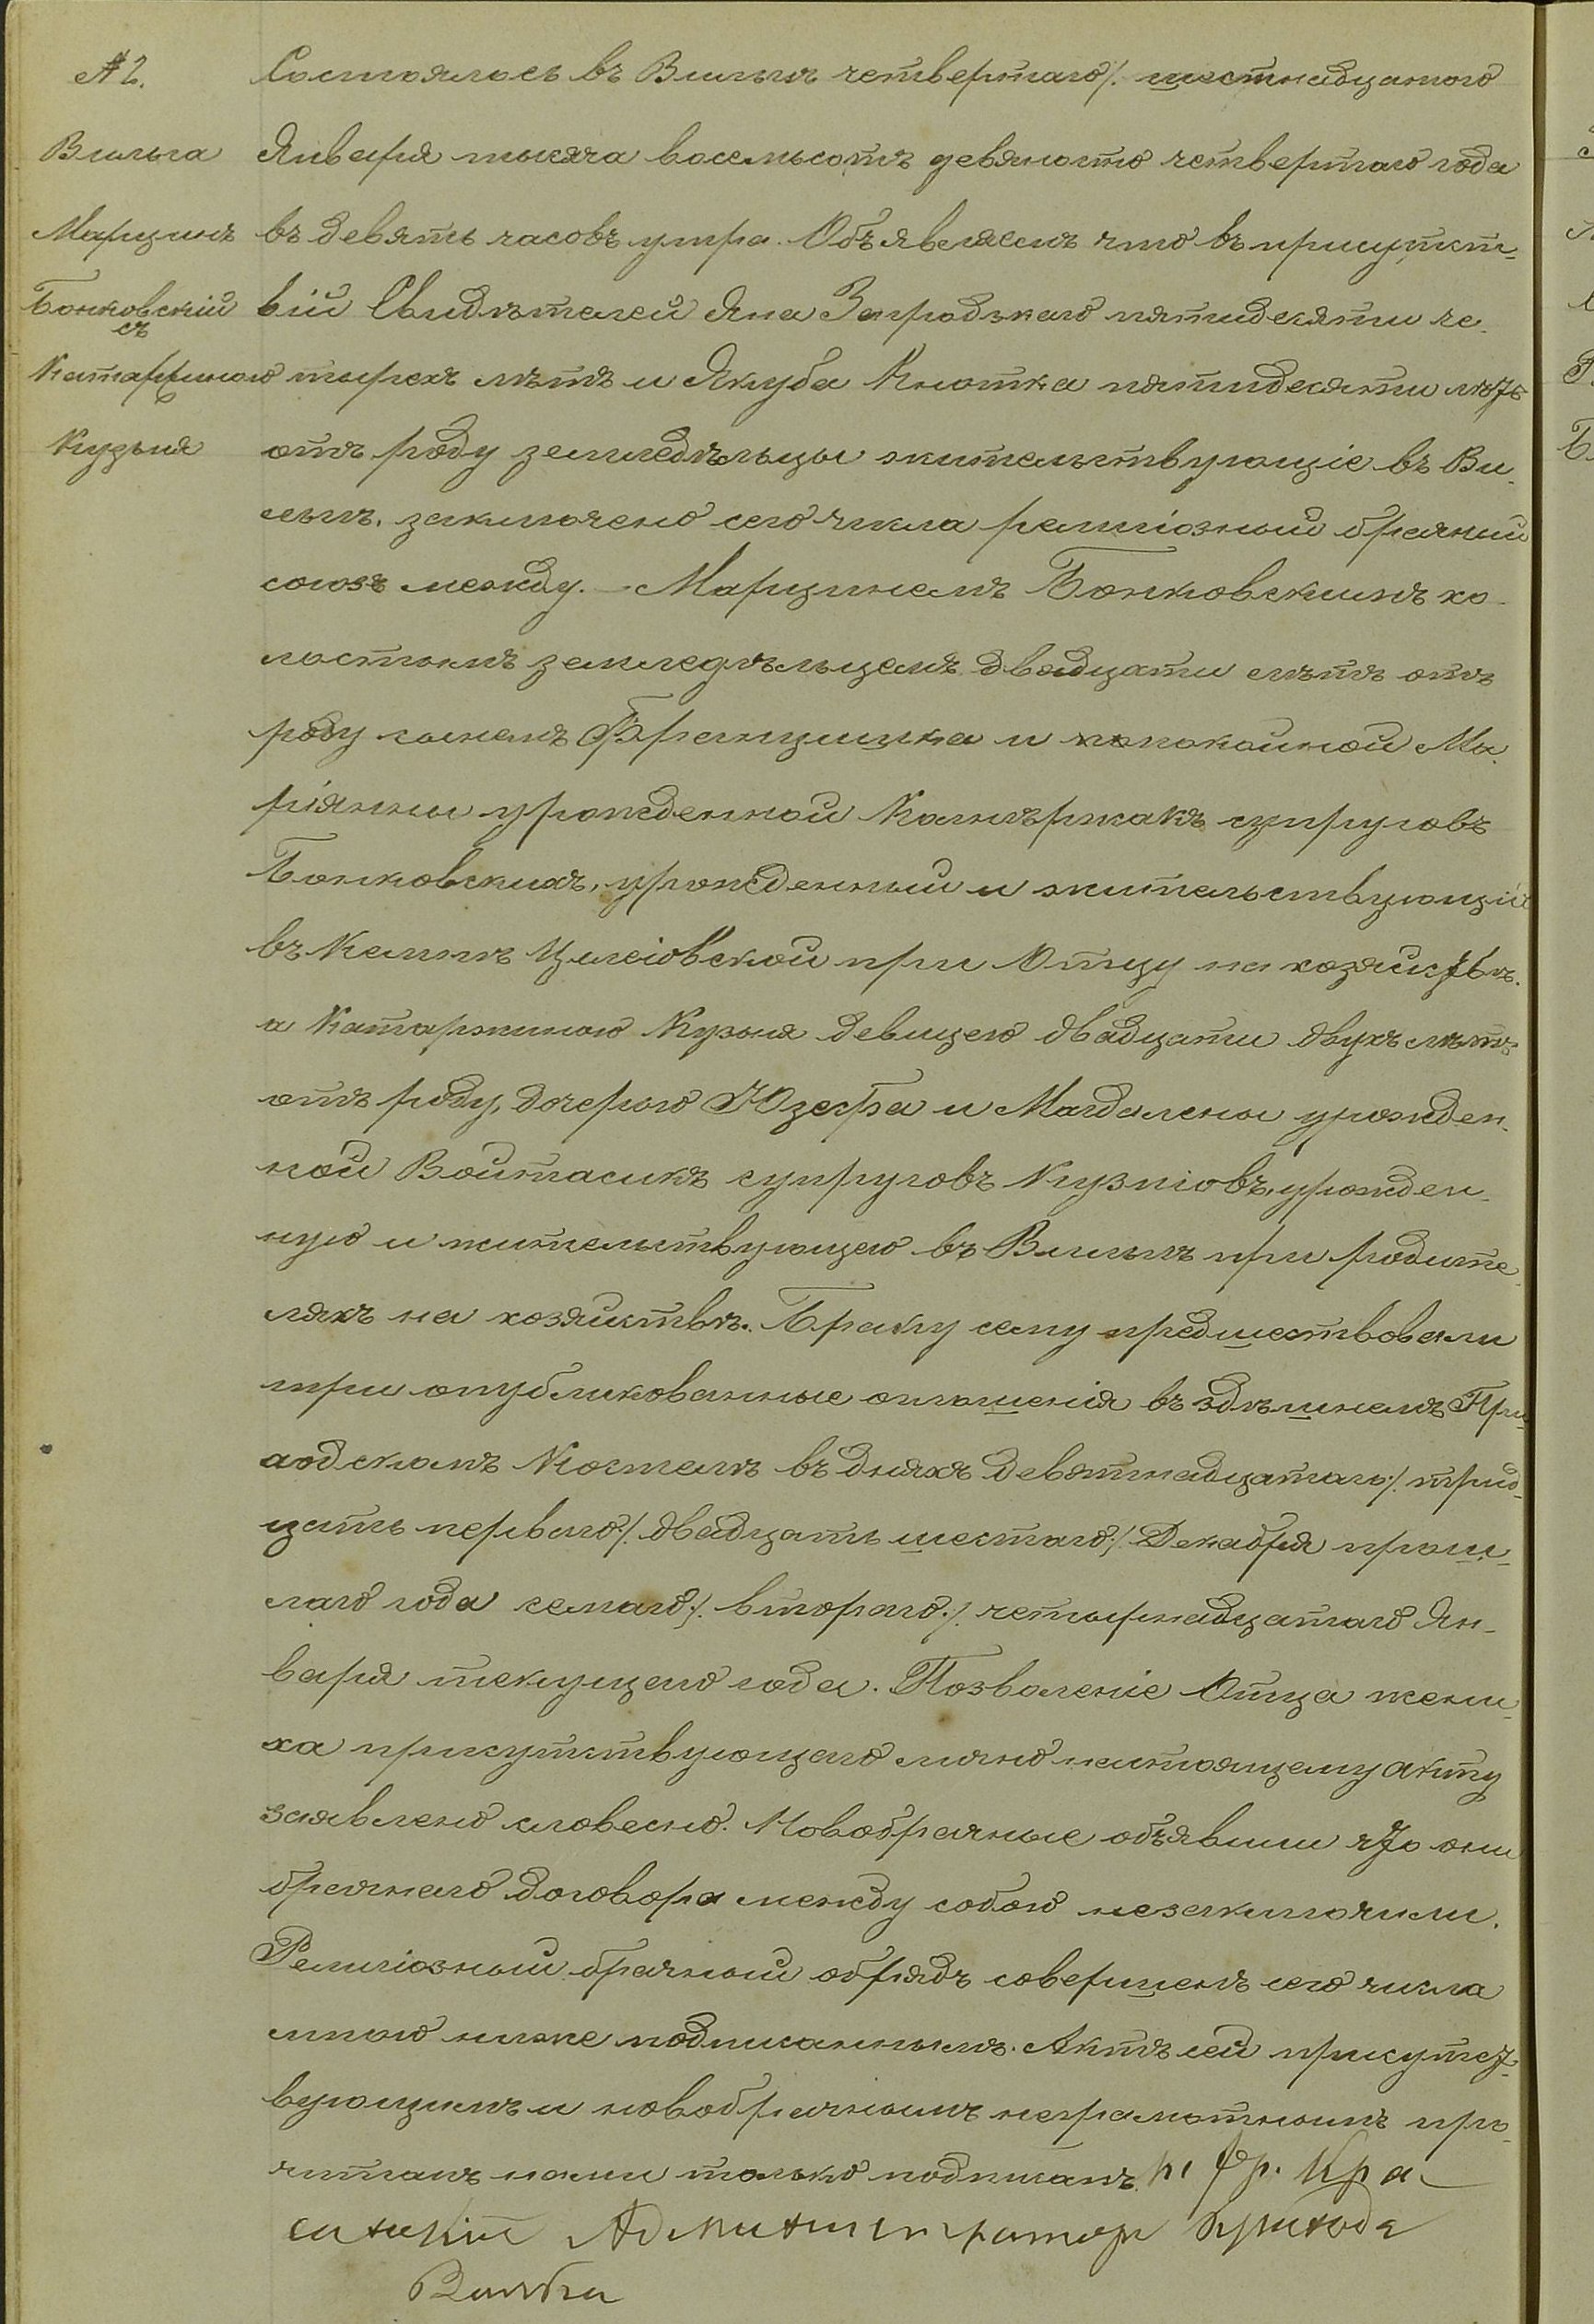 № 2.
Вильга
Марцинъ
Бонковскій
съ
Катаржиною
Кузьня
Состоялось въ Вильгѣ четвертаго /. шестнадцатого
Января тысяча восемьсотъ девяносто четвертаго года
въ девять часовъ утра. Объявляемъ что въ присутст-
віи Свидѣтелей Яна Загродзкаго пятидесяти че-
тырехъ лѣтъ и Якуба Кнотка пятидесяти лѣтъ
отъ роду земледѣльцы жительствующіе въ Ви-
льгѣ, заключено сего числа религіозный брачный
союзъ между. – Марцинемъ Бонковскимъ хо-
лостымъ земледѣльцемъ двадцати лѣтъ отъ
роду сынемъ Францишка и покойной Ма-
ріянны урожденной супруговъ
Бонковскихъ, урожденный и жительствующій
въ при Отцу на хозяйствѣ.
а Катаржиною Кузьня девицею двадцати двухъ лѣтъ
отъ роду, дочерью Юзефа и Магдалены урожден-
ной Войтасикъ супруговъ Кузніовъ, урожден-
ную и жительствующею въ Вильгѣ при родите-
ляхъ на хозяйствѣ. Браку сему предшествовали
три опубликованные оглашенія въ здѣшнемъ При-
ходскомъ Костелѣ въ дняхъ девятнадцатаго /. трид-
цать перваго /. двадцать шестаго /. Декабря прош-
лаго года семаго /. втораго /. четырнадцатаго Ян-
варя текущаго года. Позволеніе Отца жени-
ха присутствующаго лично настоящему акту
заявлено словесно. Новобрачные объявили что они
брачнаго договора между собою незаключили.
Религіозный брачный обрядъ совершенъ сего числа
мною ниже подписаннымъ. Актъ сей присутст-
вующимъ и новобрачнымъ неграмотнымъ про-
читанъ нами только подписанъ. Кс Фр. Кра-
Администраторъ Прихода
Вильга